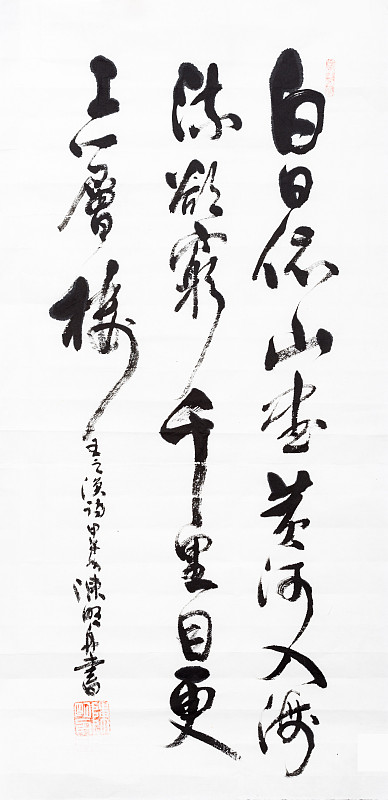 白日依山尽黄河入海
流欲窮千里目更
上一層楼
王之渙詩甲午年陳明月書